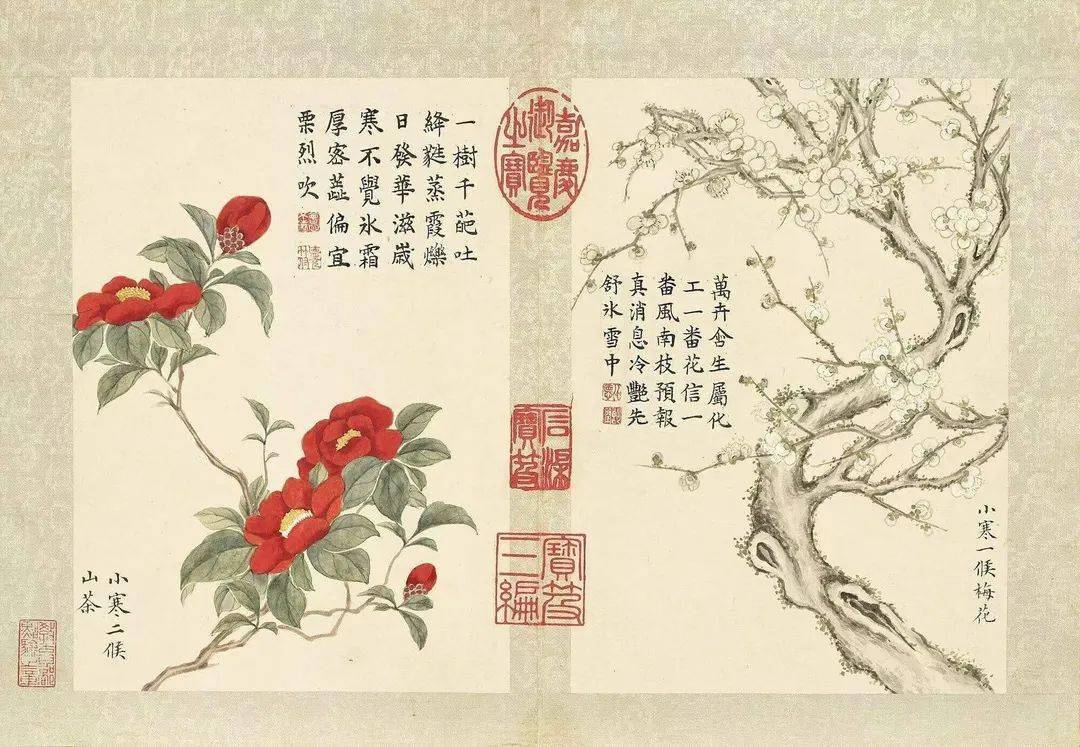 小寒一候梅花
萬卉含生屬化
工一番花信一
番風南枝預報
真消息冷艷先
舒氷雪中
嘉慶
御覽
之寶
石渠
寶笈
寶笈
三編
一樹千葩吐
絳蕤蒸霞爍
日發華滋嵗
寒不覺氷霜
厚密蕋偏宜
栗烈吹
小寒二候
山茶